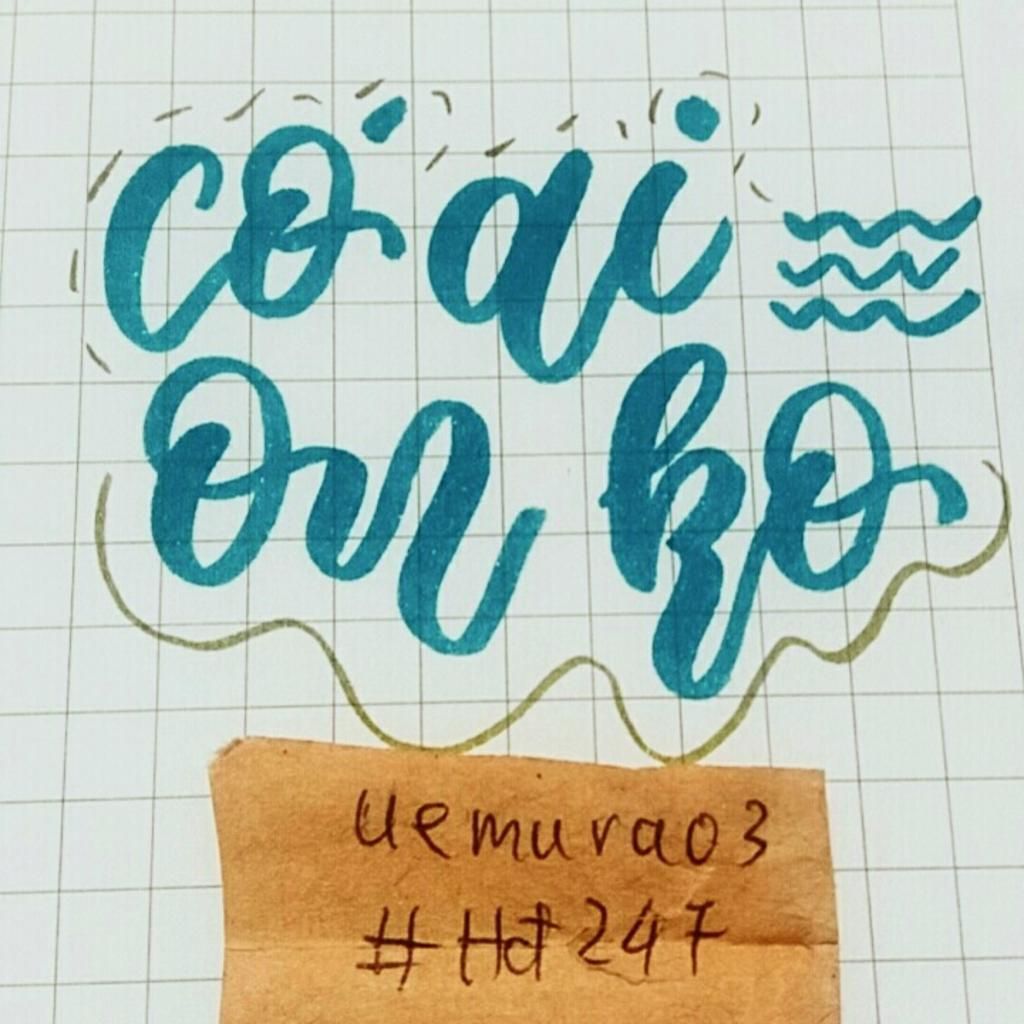 có ai
on ko
uemura03
#Hđ247